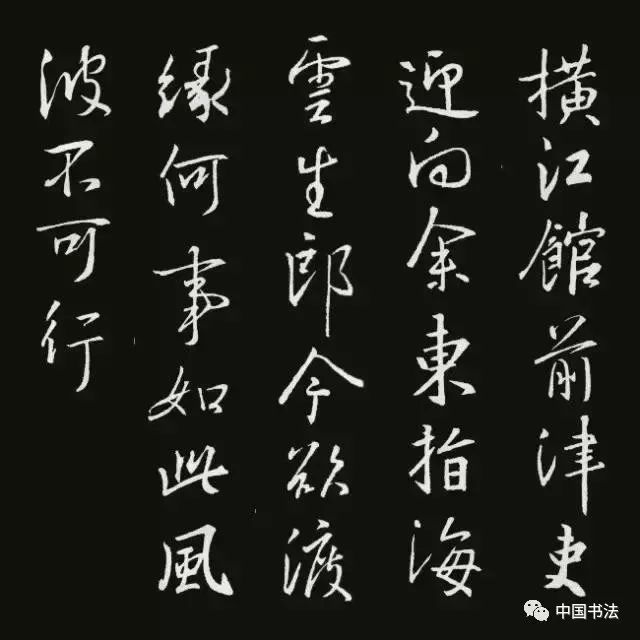 橫江館前津吏
迎向余東指海
雲生郎今欲渡
緣何事如此風
波不可行
中国书法